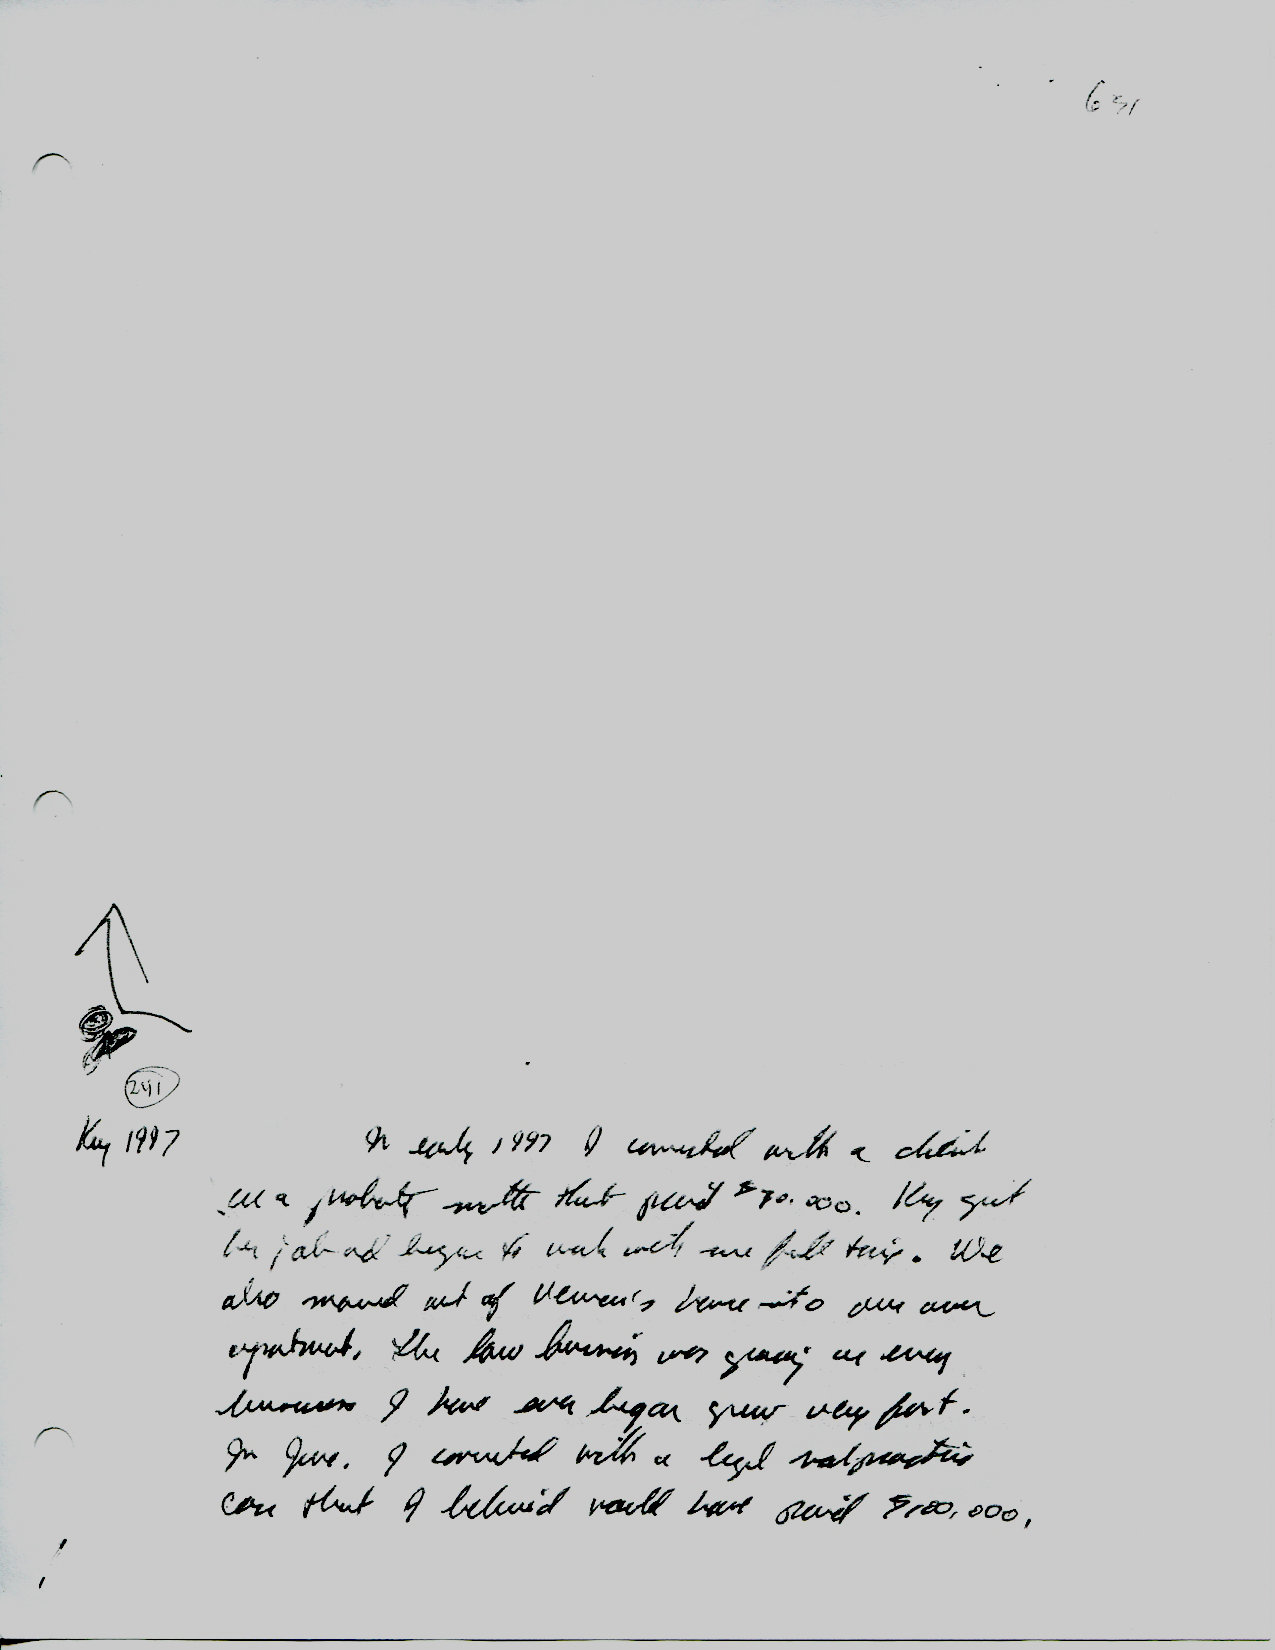 631
241
Kay 1997
In early 1997 I connected with a client
on a probate matter that paid $70,000. Kay quit
her job and began to work with me full time. We
also moved out of house into our own
apartment. The law business was growing as every
business I have ever began grew very fast.
In June, I connected with a legal malpractice
case that I believed would have paid $100,000,